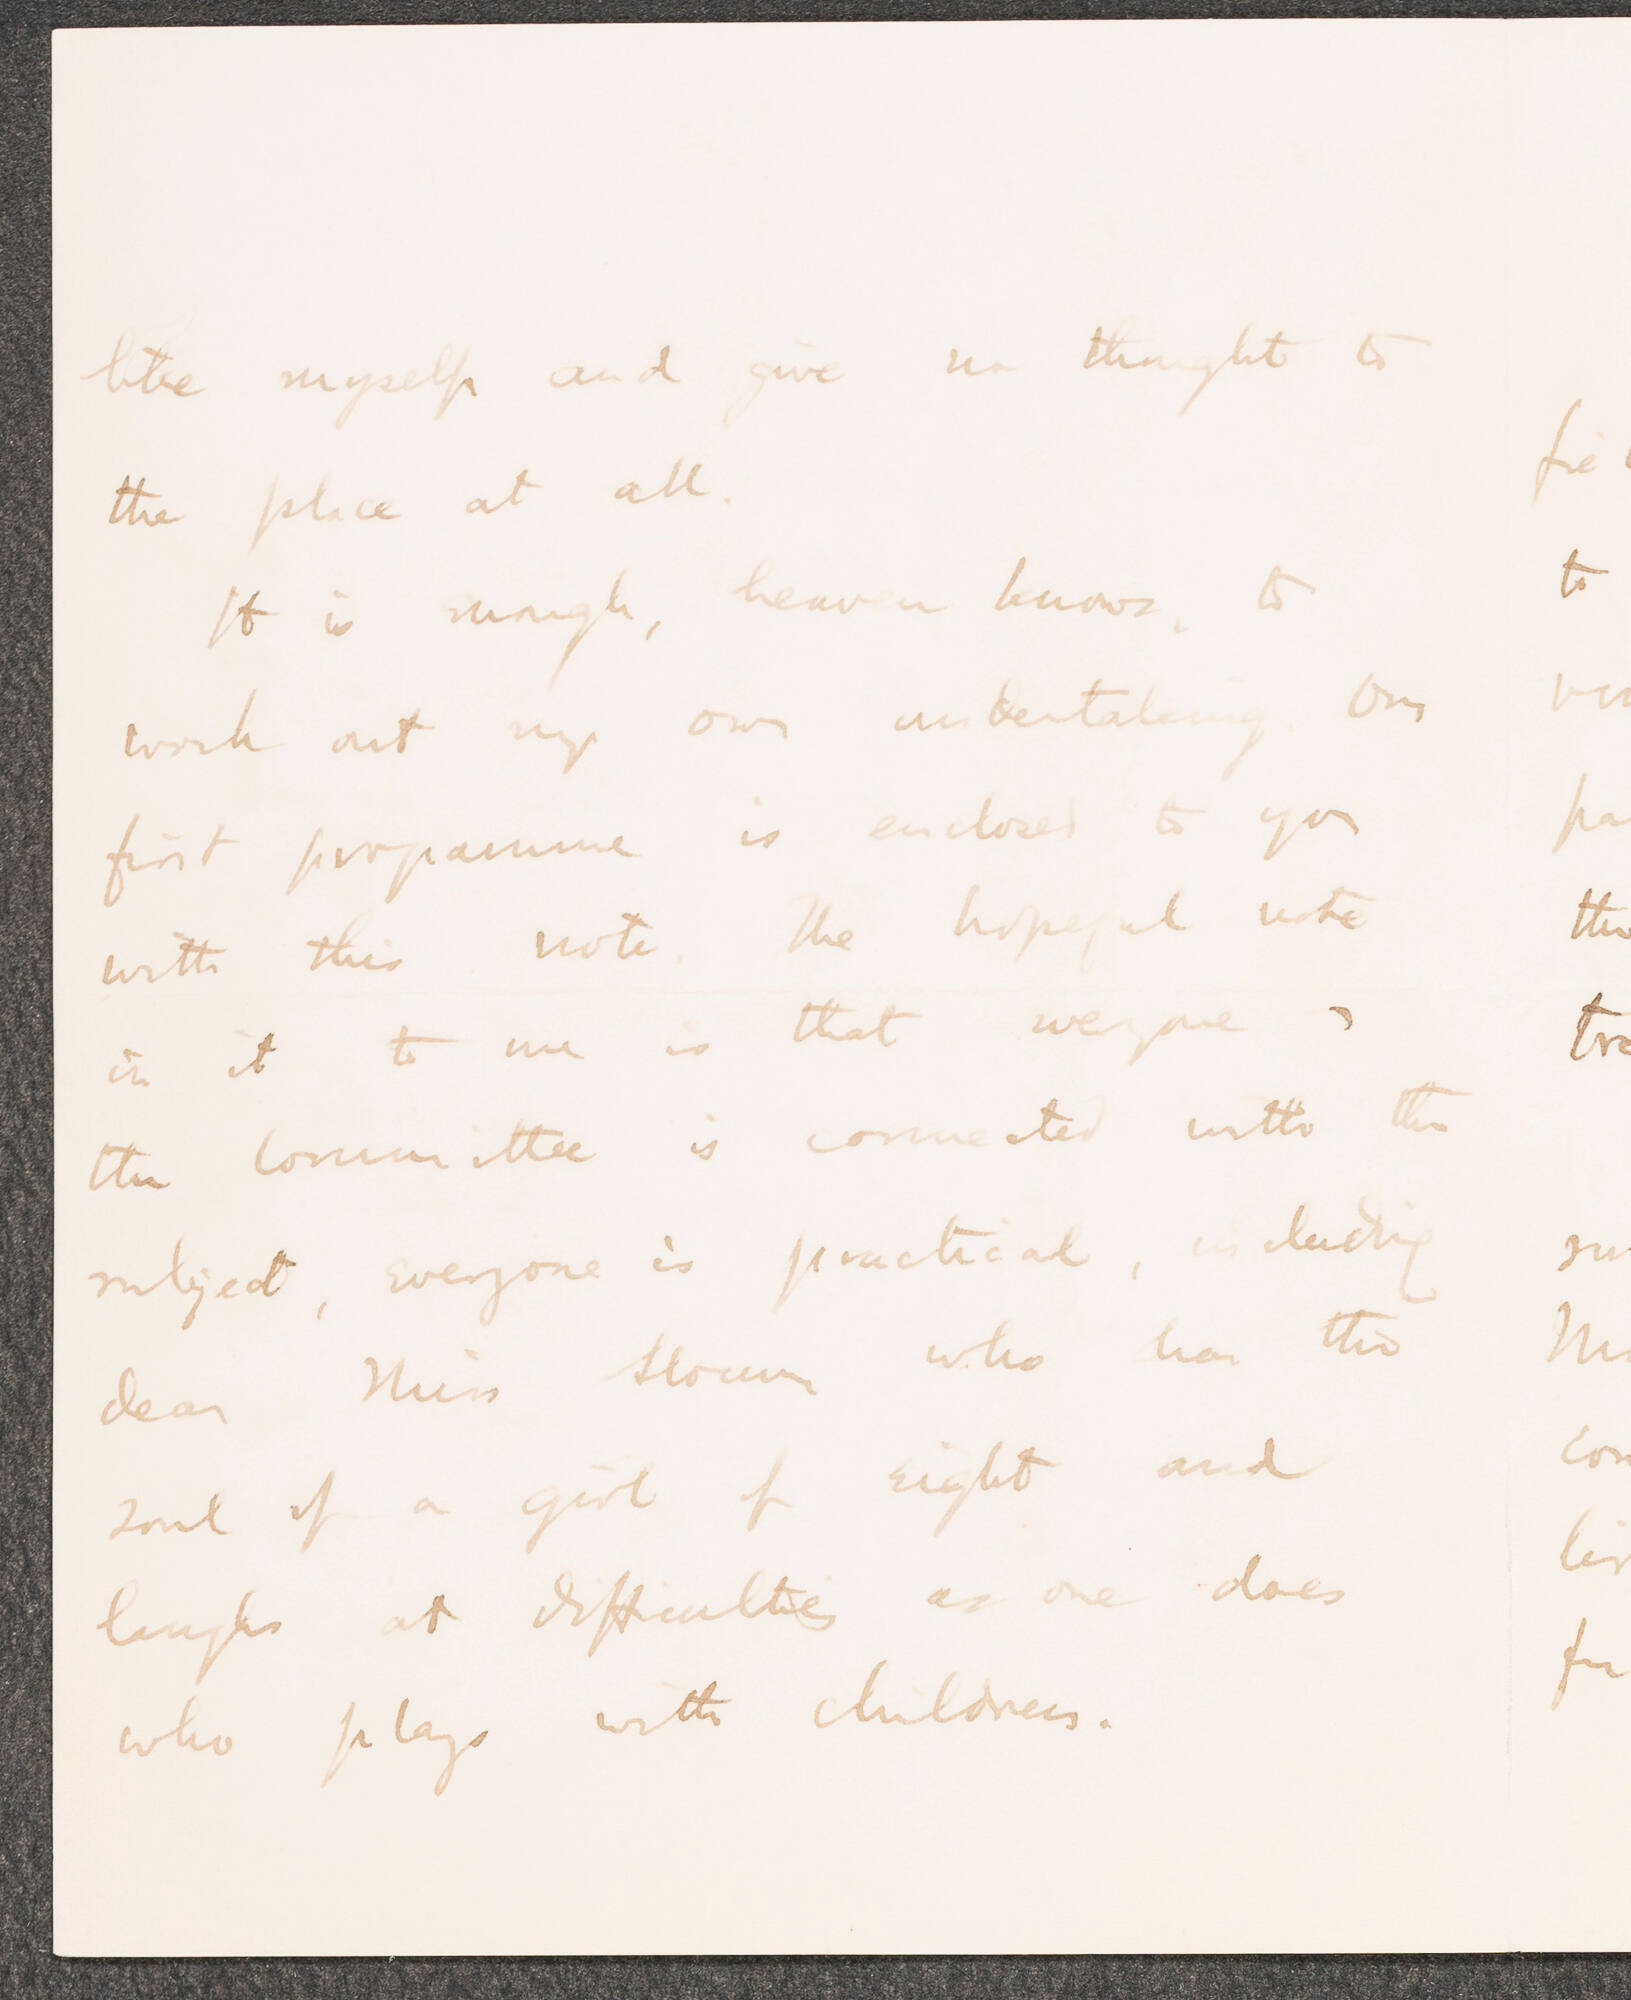 like myself and give no thought to
the place at all.
It is enough, heaven knows, to
work out my own undertaking. Our
first programme is enclosed to you
with this note. The hopeful note
in it to me is that everyone
the Committee is connected with the
subject, everyone is practical, including
dear Miss Slocum who has the
soul of a girl of eight and
laughs at difficulties as one does
who plays with children.
to